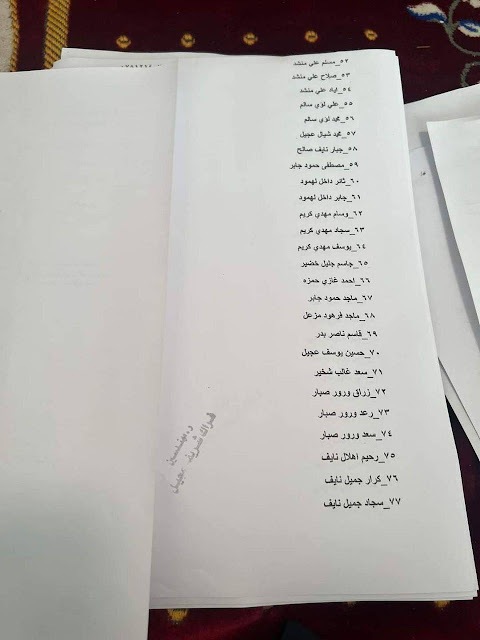 ٥٢_مسلم علي منشد
٥٣_صلاح علي منشد
٥٤_اياد علي منشد
٥٥_علي لؤي سالم
٥٦_محمد لؤي سالم
٥٧_محمد شيال عجيل
٥٨_جبار نايف صالح
٥٩_مصطفى حمود جابر
٦٠_ثائر داخل لهمود
٦١_جابر داخل لهمود
٦٢_وسام مهدي كريم
٦٣_سجاد مهدي كريم
٦٤_يوسف مهدي كريم
٦٥_جاسم جليل خضير
٦٦_احمد غازي حمزه
٦٧_ماجد حمود جابر
٦٨_ماجد فرهود مزعل
٦٩_قاسم ناصر بدر
٧٠_حسين يوسف عجيل
٧١_سعد غالب شخير
٧٢_زراق ورور صبار
٧٣_رعد ورور صبار
٧٤_سعد ورور صبار
٧٥_رحيم اهلال نايف
٧٦_كرار جميل نايف
٧٧_سجاد جميل نايف
ر.مهندسين